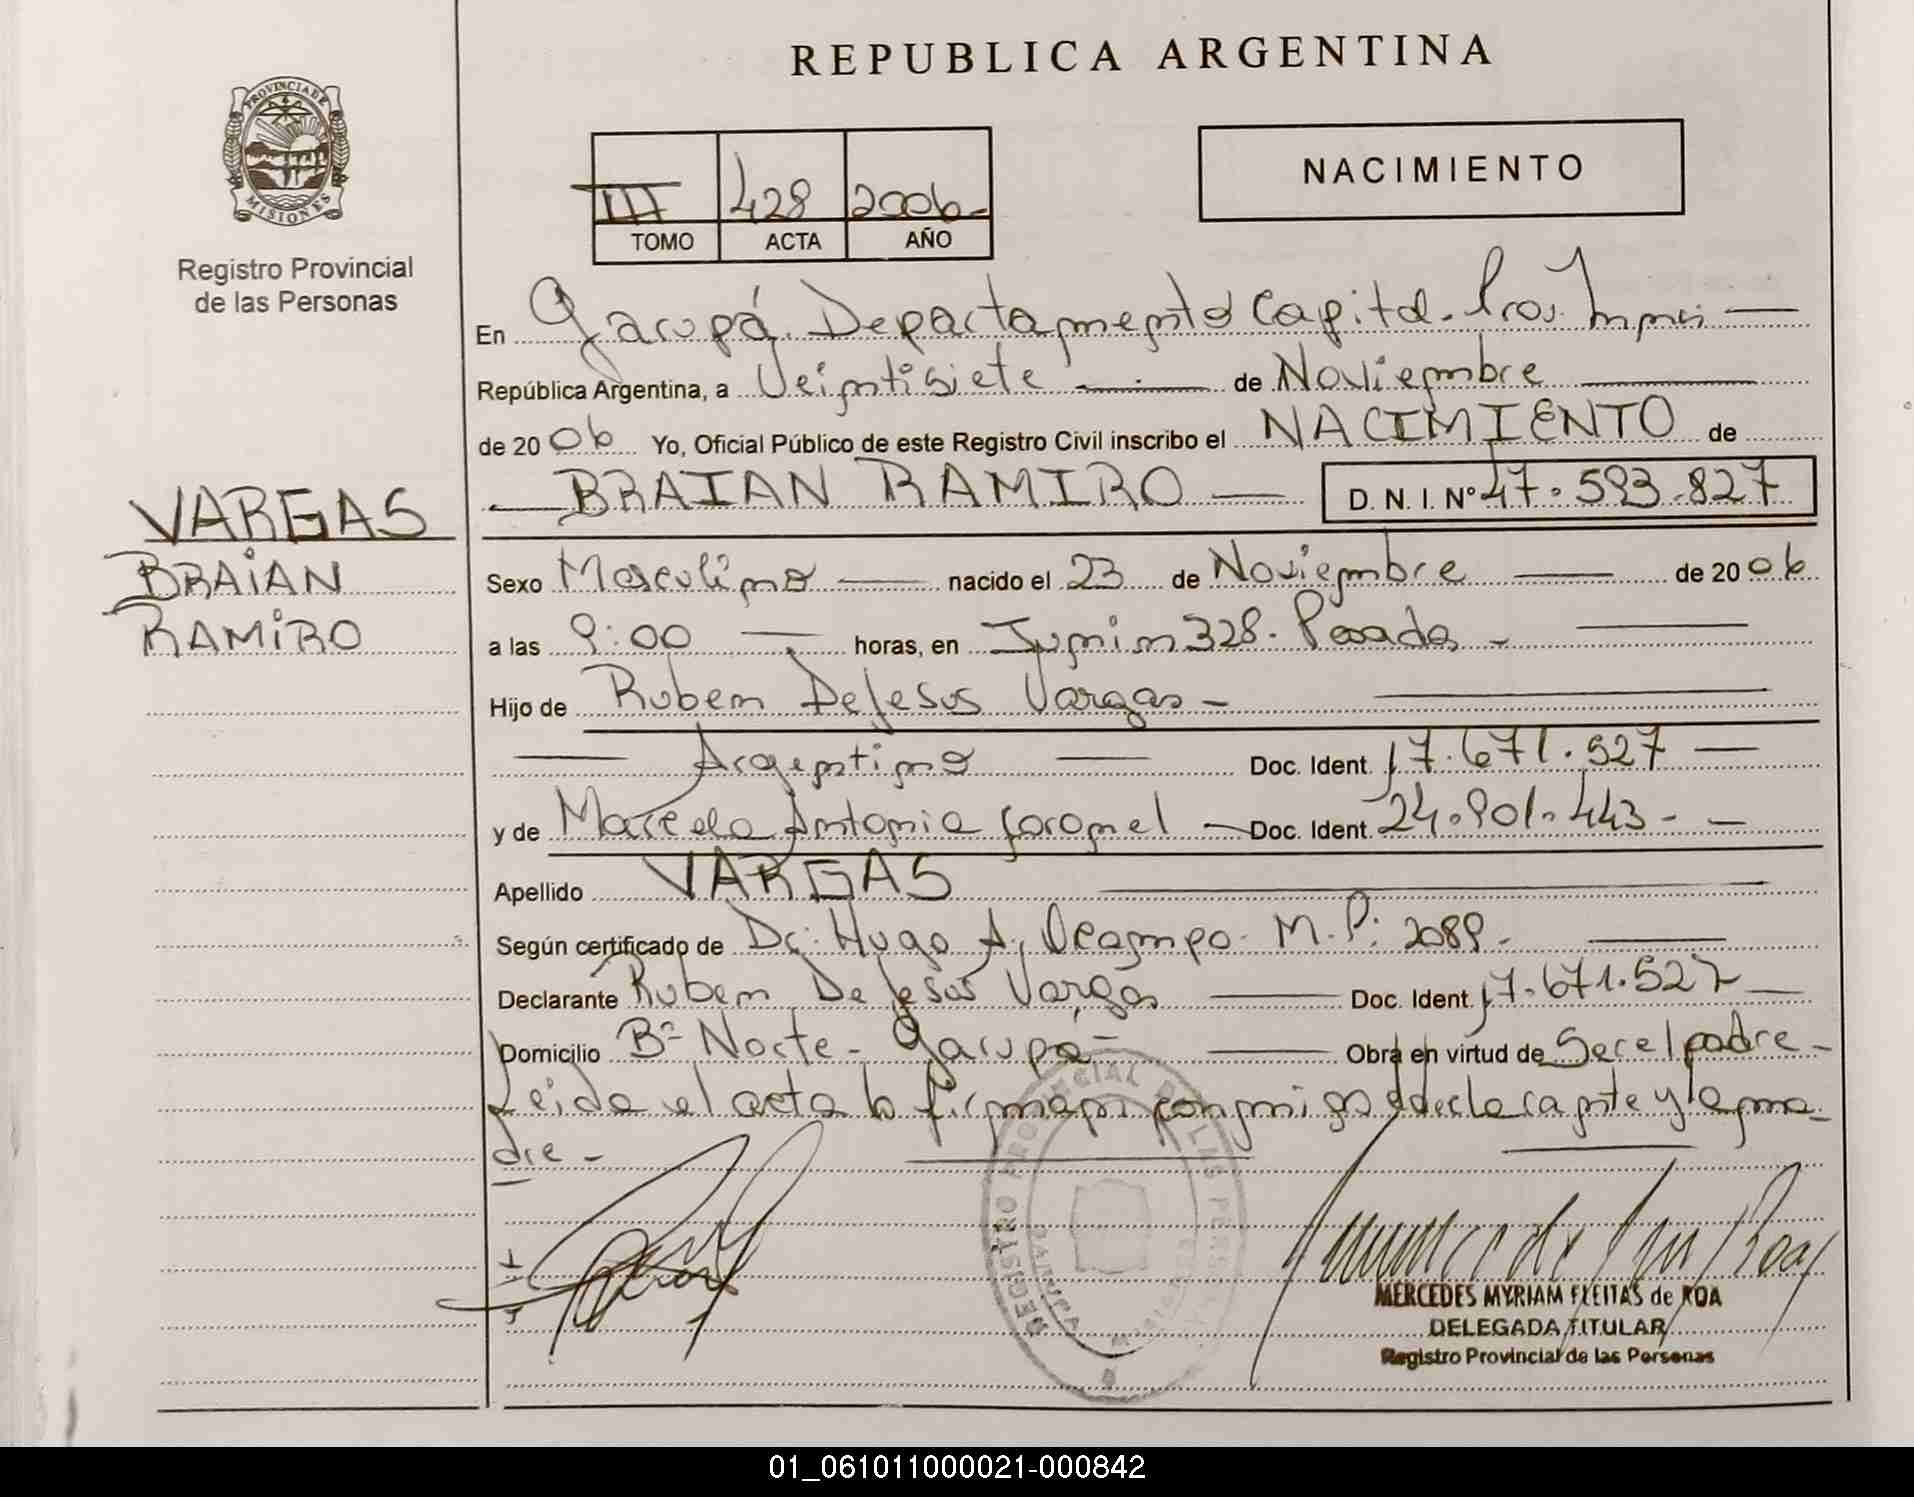 REPUBLICA ARGENTINA
PROVINCIA DE MISIONES
Registro Provincial
de las Personas
III 428 2006-
TOMO ACTA AÑO
NACIMIENTO
En Garupá. Departamento Capital. Pros.
República Argentina, a Veintisiete de Noviembre
de 2006 Yo, Oficial Público de este Registro Civil inscribo el NACIMIENTO de
BRAIAN RAMIRO D. N. I. Nº 47.593.827
VARGAS
BRAIAN
RAMIRO
Sexo Masculino nacido el 23 de Noviembre de 2006
a las 9:00 horas, en Junin 328. Posadas -
Hijo de Ruben De Jesus Vargas -
Argentino Doc. Ident. 17.671.527
y de Marcela Antonia Coronel Doc. Ident. 24.901.443 -
Apellido VARGAS
Según certificado de Dr. Hugo A. Ocampo. M.P: 2089.
Declarante Ruben De Jesus Vargas Doc. Ident. 17.671.527
Domicilio Bº Norte - Garupá - Obra en virtud de Ser el padre -
Leida el acta la firman conmigo el declarante y la ma-
dre -
REGISTRO PROVINCIAL DE LAS PERSONAS
MERCEDES MYRIAM FLEITAS de ROA
DELEGADA TITULAR
Registro Provincial de las Personas
01_061011000021-000842